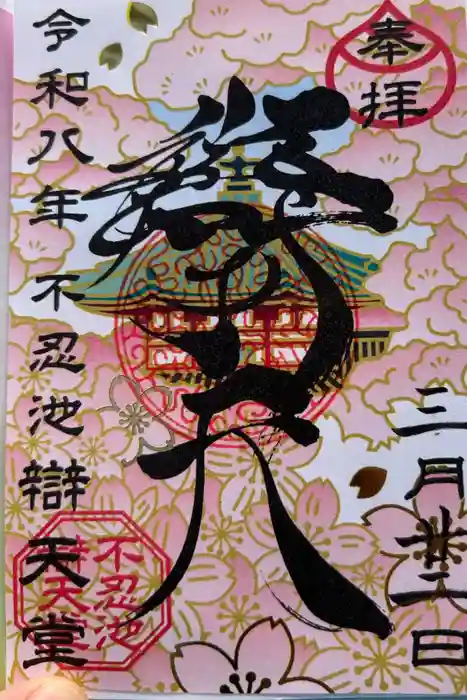 奉拝
三月廿二日
辯才天
令和八年 不忍池辯天堂
不忍池